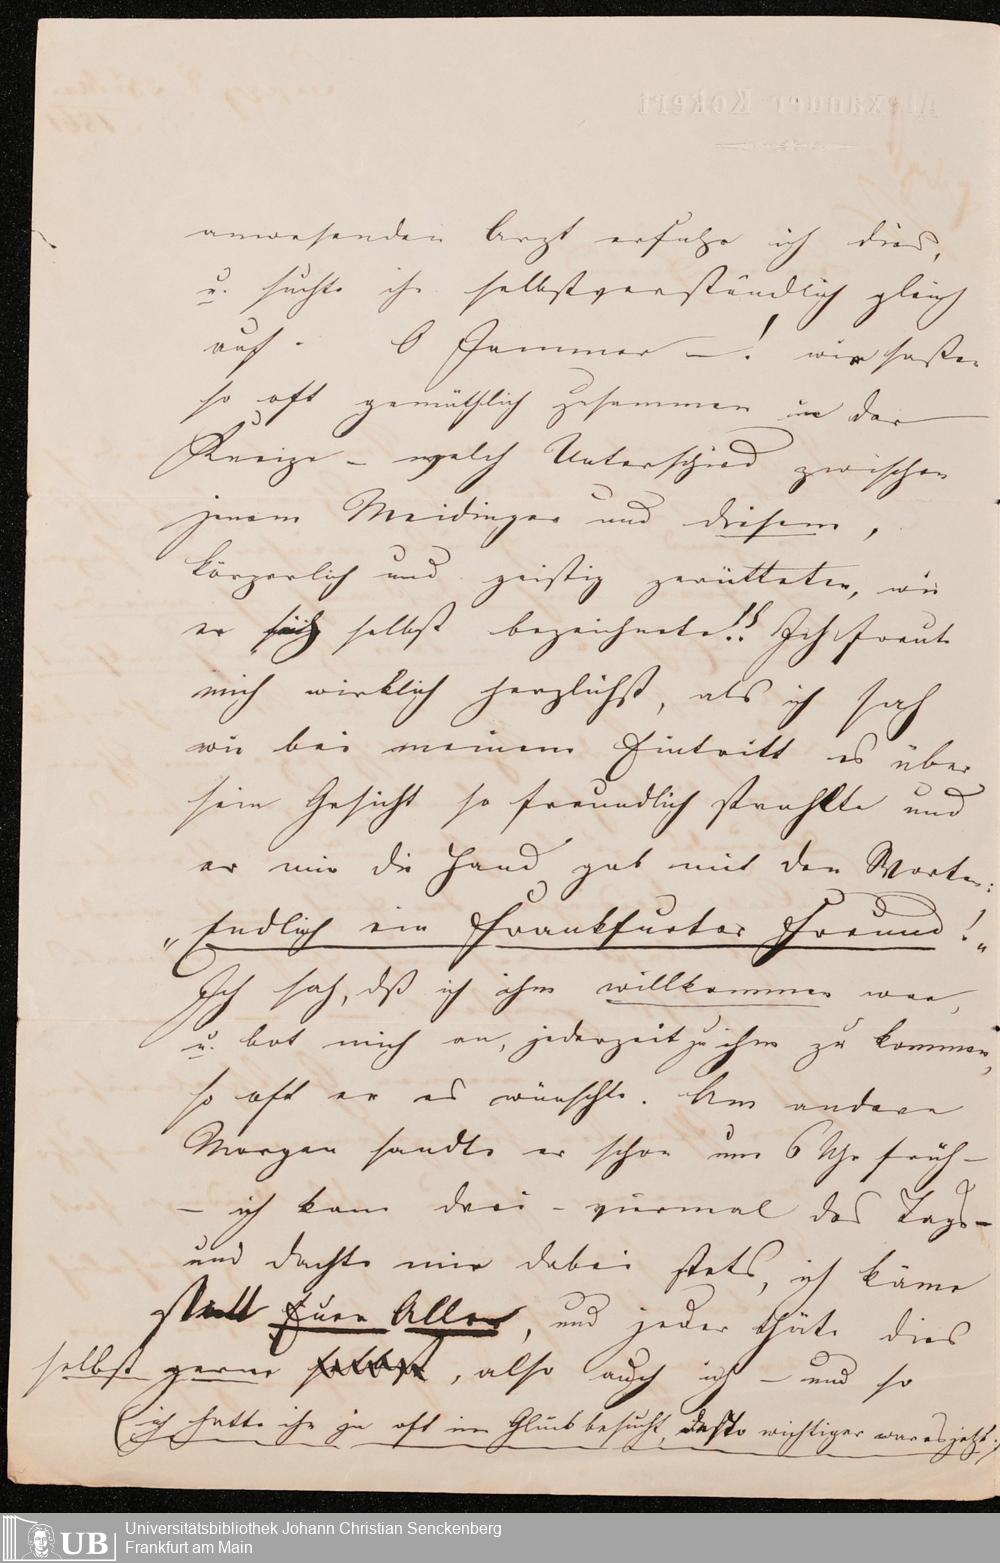 anwesenden Arzt erfuhr ich dies,
u. suchte ihn selbstverständlich gleich
auf. O Jammer –! wir saßen
so oft gemüthlich zusammen in der
Kneipe – welch Unterschied zwischen
jenem Meidinger und diesem,
körperlich und geistig zerütteten, wie
er sich selbst bezeichnete!! Ich freute
mich wirklich herzlichst, als ich sah
wie bei meinem Eintritt es über
sein Gesicht so freundlich strahlte und
er mir die Hand gab mit den Worten:
„Endlich ein Frankfurter Freund!"
Ich sah, dß ich ihm willkommen war,
u. bot mich an, jederzeit zu ihm zu kommen,
so oft er es wünschte. Am andern
Morgen sandte er schon um 6 Uhr früh –
– ich kam drei – viermal des Tags –
und dachte mir dabei stets, ich käme
statt Euer Aller, und jeder thäte dies
selbst gerne, also auch ich – und so
(ich hatte ihn ja oft im Glück besucht, desto wichtiger war es jetzt.)
Universitätsbibliothek Johann Christian Senckenberg
Frankfurt am Main
UB